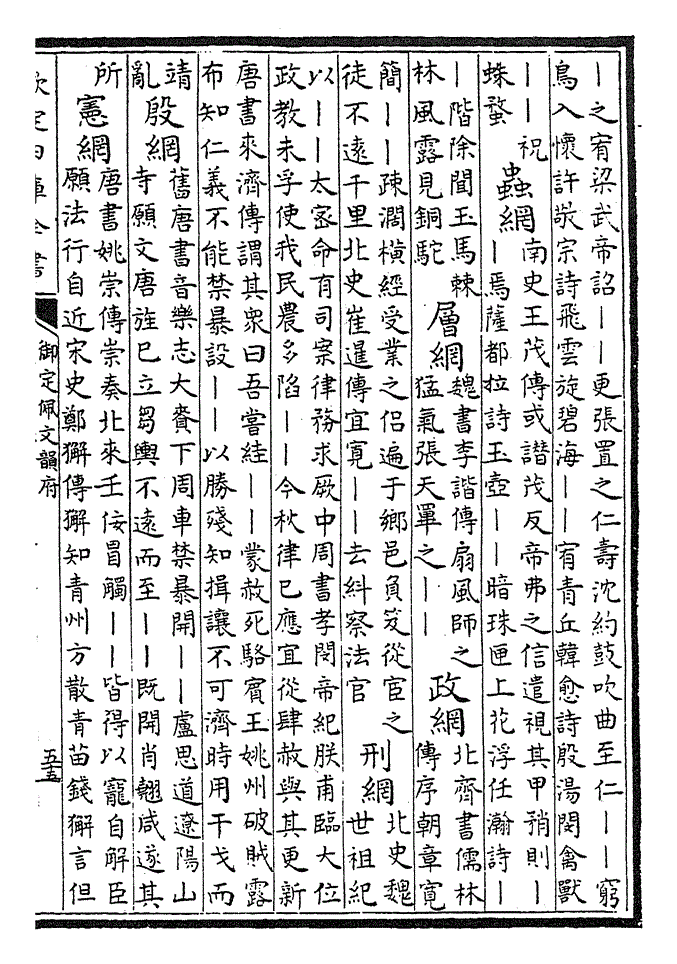 ｜之宥梁武帝詔｜｜更張置之仁壽沈約鼓吹曲至仁｜｜窮
鳥入懷許敬宗詩飛雲旋碧海｜｜宥青丘韓愈詩殷湯閔禽獸
｜｜祝
蛛蝥
蟲網
南史王茂傳或譖茂反帝弗之信遣視其甲矟則｜
｜焉薩都拉詩玉壺｜｜暗珠匣上花浮任瀚詩｜
｜階除間玉馬棘
林風露見銅駝
層網
魏書李諧傳扇風師之
猛氣張天罼之｜｜
政網
北齊書儒林
傳序朝章寛
簡｜｜疎濶橫經受業之侶遍于鄉邑負笈從宦之
徒不遠千里北史崔暹傳宜寛｜｜去糾察法官
刑網
北史魏
世祖紀
以｜｜太宻命有司案律務求厥中周書孝閔帝紀朕甫臨大位
政教未孚使我民農多陷｜｜今秋律已應宜從肆赦與其更新
唐書來濟傳謂其衆曰吾嘗絓｜｜蒙赦死駱賓王姚州破賊露
布知仁義不能禁暴設｜｜以勝殘知揖讓不可濟時用干戈而
靖
亂
殷網
舊唐書音樂志大賚下周車禁暴開｜｜盧思道遼陽山
寺願文唐旌已立芻輿不遠而至｜｜既開肖翹咸遂其
所
憲網
唐書姚崇傳崇奏北來壬佞冒觸｜｜皆得以寵自解臣
願法行自近宋史鄭獬傳獬知青州方散青苗錢獬言但
欽定四庫全書
御定佩文韻府
五十五